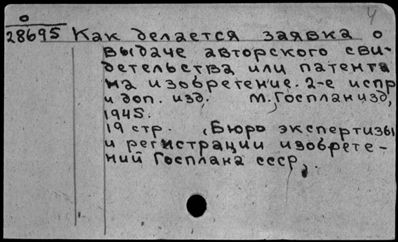 о
4
28695 Как делается заявка о
выдаче авторского сви-
детельства или патента
на изобретение. 2-е испр
и доп. изд. М. Госпланизд,
1945.
19 стр. (Бюро экспертизы
и регистрации изобрете-
ний Госплана СССР).